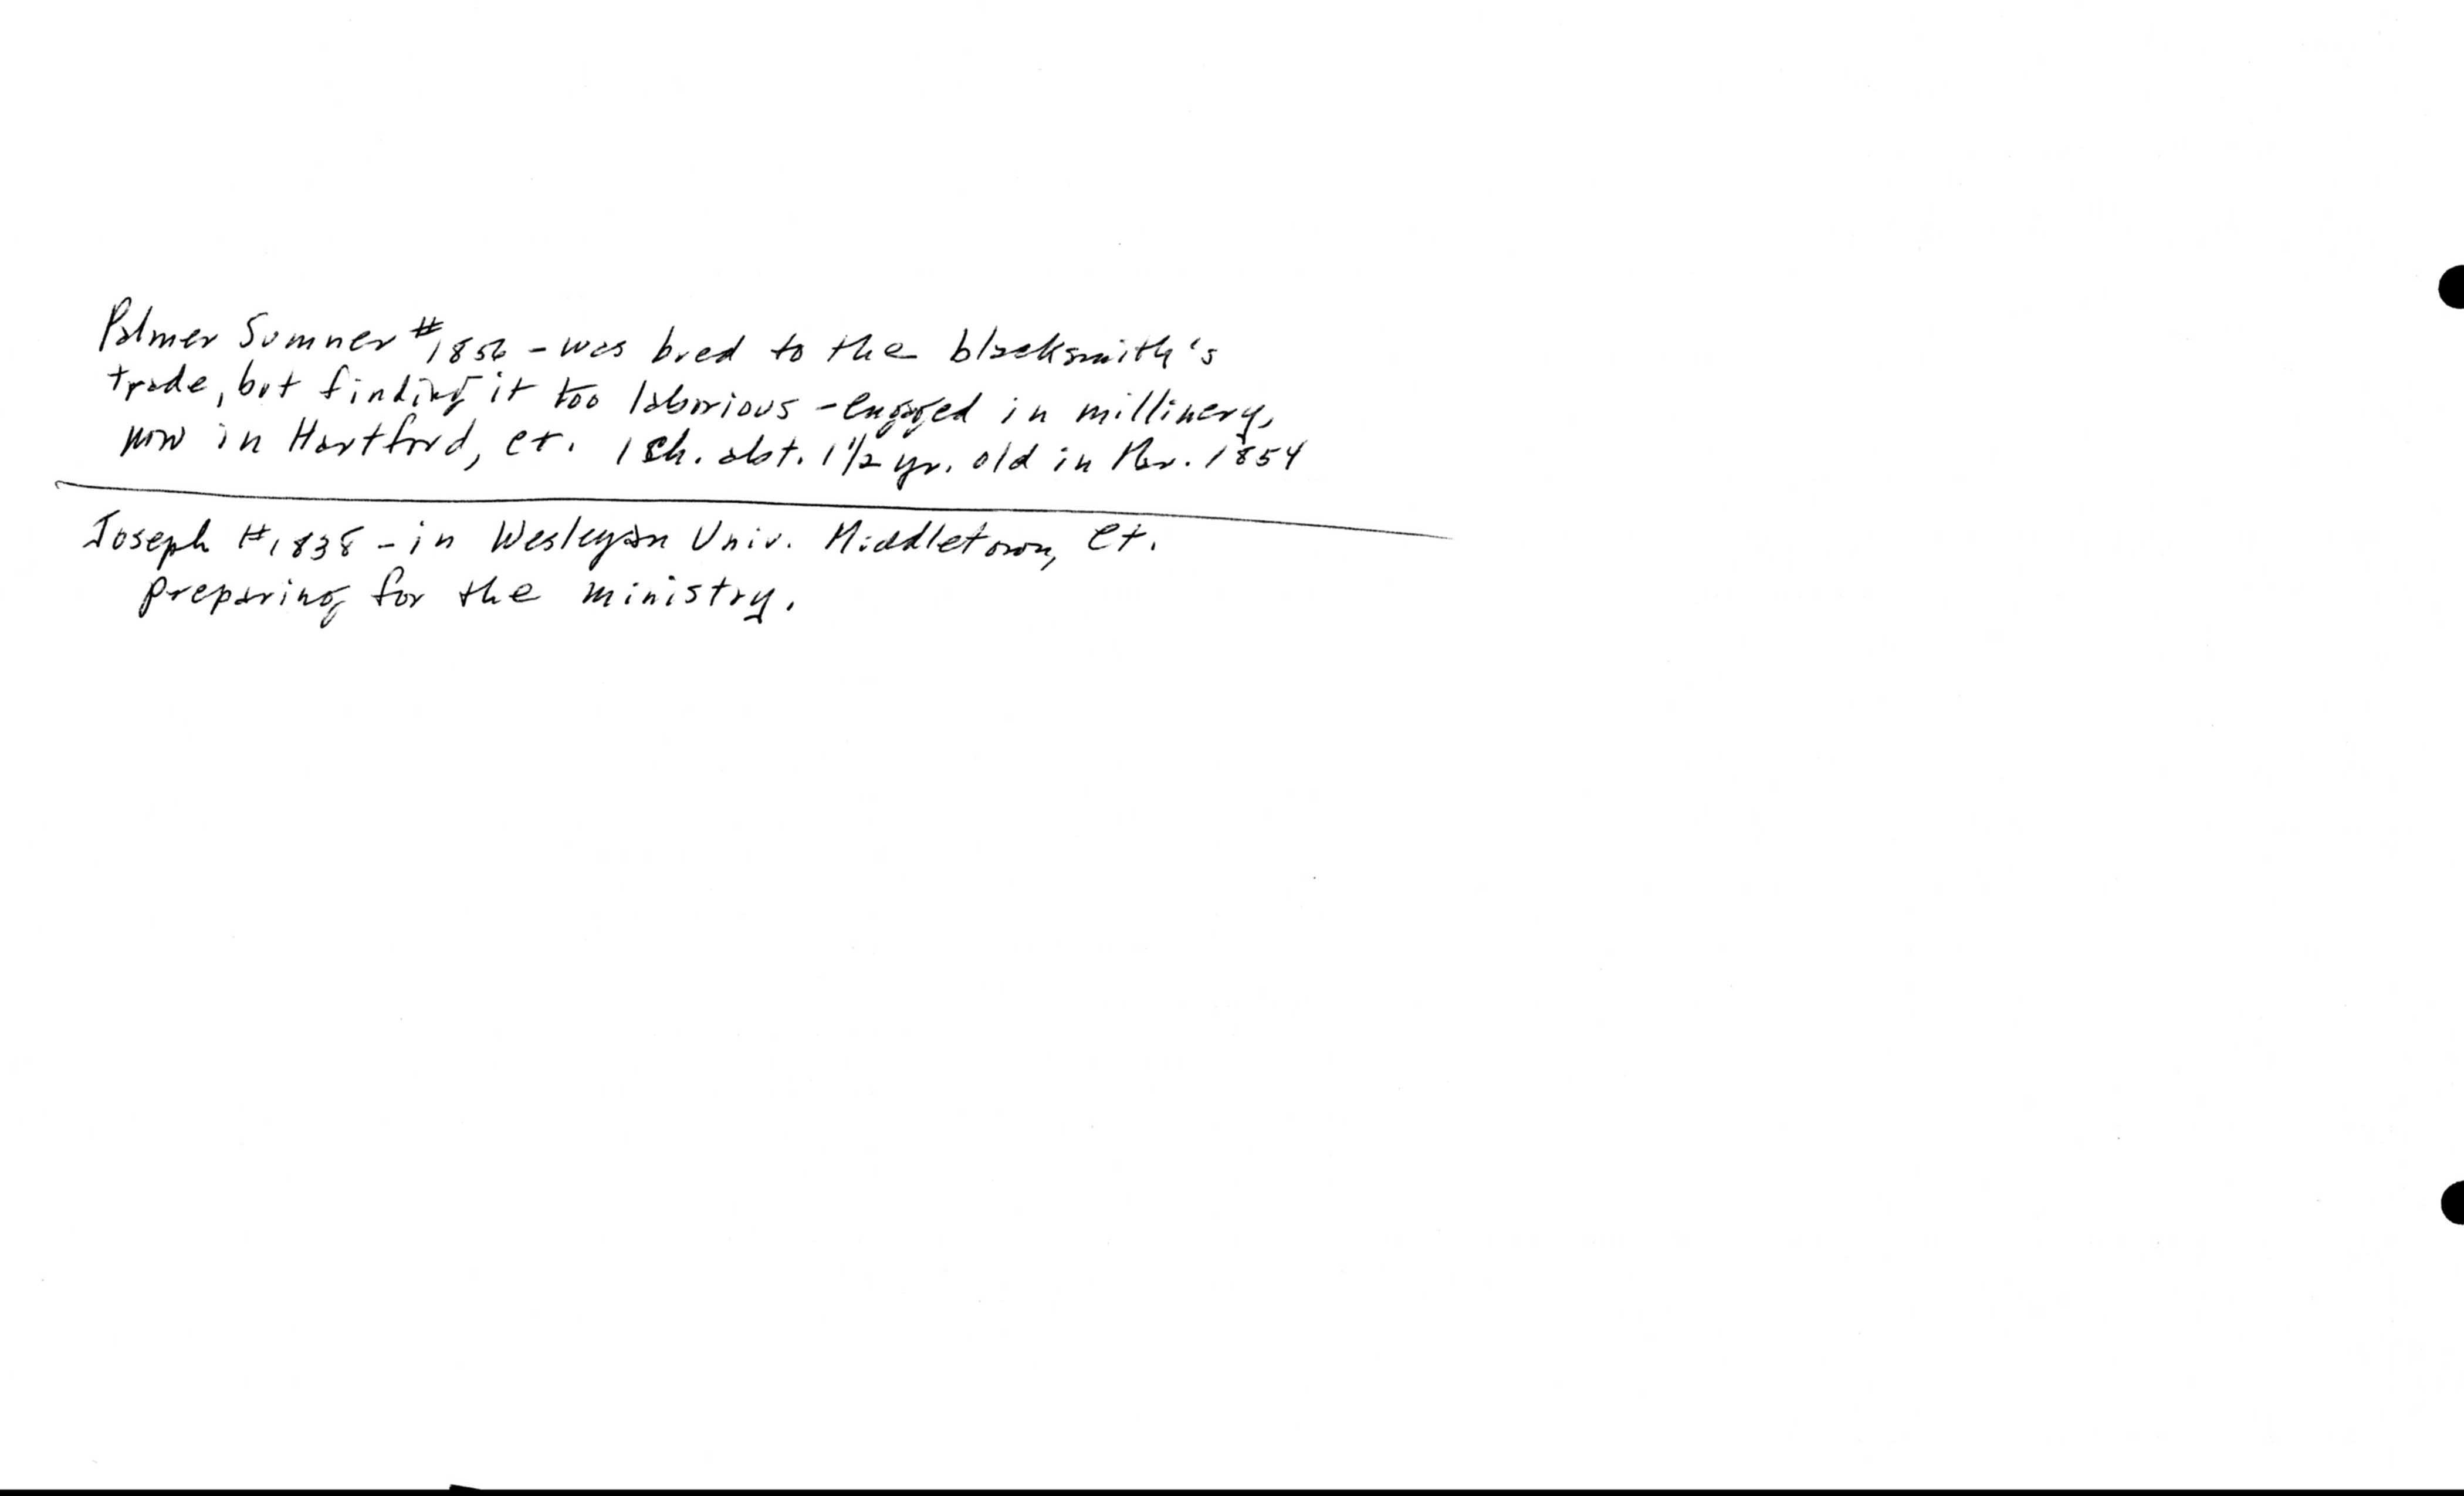 Palmer Sumner #1856 - was bred to the blacksmith's
trade, but finding it too laborious - engaged in millinery,
now in Hartford, Ct. 1 ch. abt. 1 1/2 yr. old in 1854
Joseph #1838 - in Wesleyan Univ. Middletown, Ct.
preparing for the ministry.